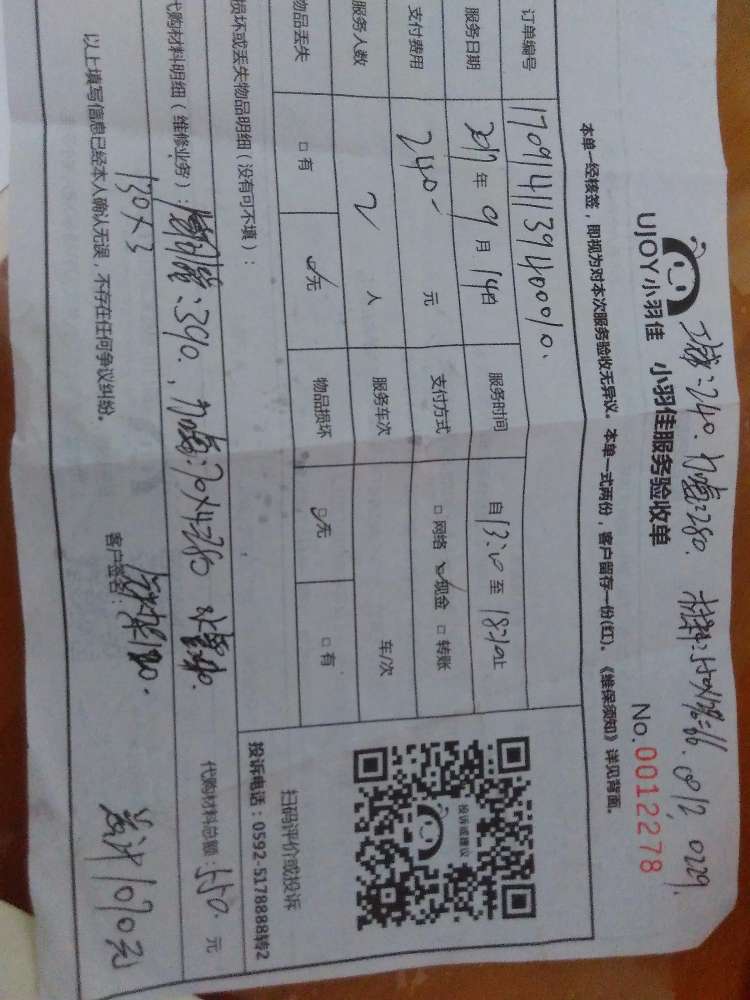 UJOY小羽佳 小羽佳服务验收单
No.0012278
本单一经核签，即视为对本次服务验收无异议。本单一式两份，客户留存一份(红)。《维保须知》详见背面。
订单编号 170914113940010.
服务日期 2017年9月14日 服务时间 自13:20至18:20止
支付费用 240- 元 支付方式 □网络 ☑现金 □转账
服务人数 2 人 服务车次 车/次
物品丢失 □有 ☑无 物品损坏 ☑无 □有
损坏或丢失物品明细（没有可不填）：
代购材料明细（维修业务）： :390. 70×4=280
130×3
代购材料总额：550.元
以上填写信息已经本人确认无误，不存在任何争议纠纷。
客户签名：
总计1070元
投诉或建议
扫码评价或投诉
投诉电话：0592-5178888转2